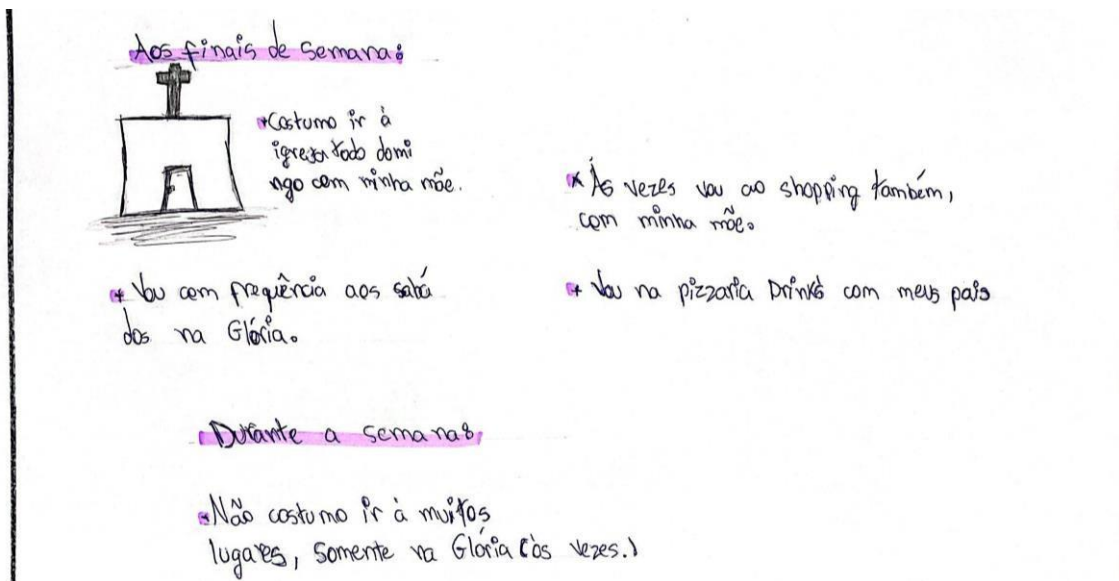 Aos finais de semana:
*Costumo ir à
igreja todo domi
ngo com minha mãe.
* Vou com frequência aos sabá
dos na Glória.
* Às vezes vou ao shopping também,
com minha mãe.
* Vou na pizzaria Drinks com meus pais
Durante a semana:
*Não costumo ir à muitos
lugares, somente na Glória (às vezes.)